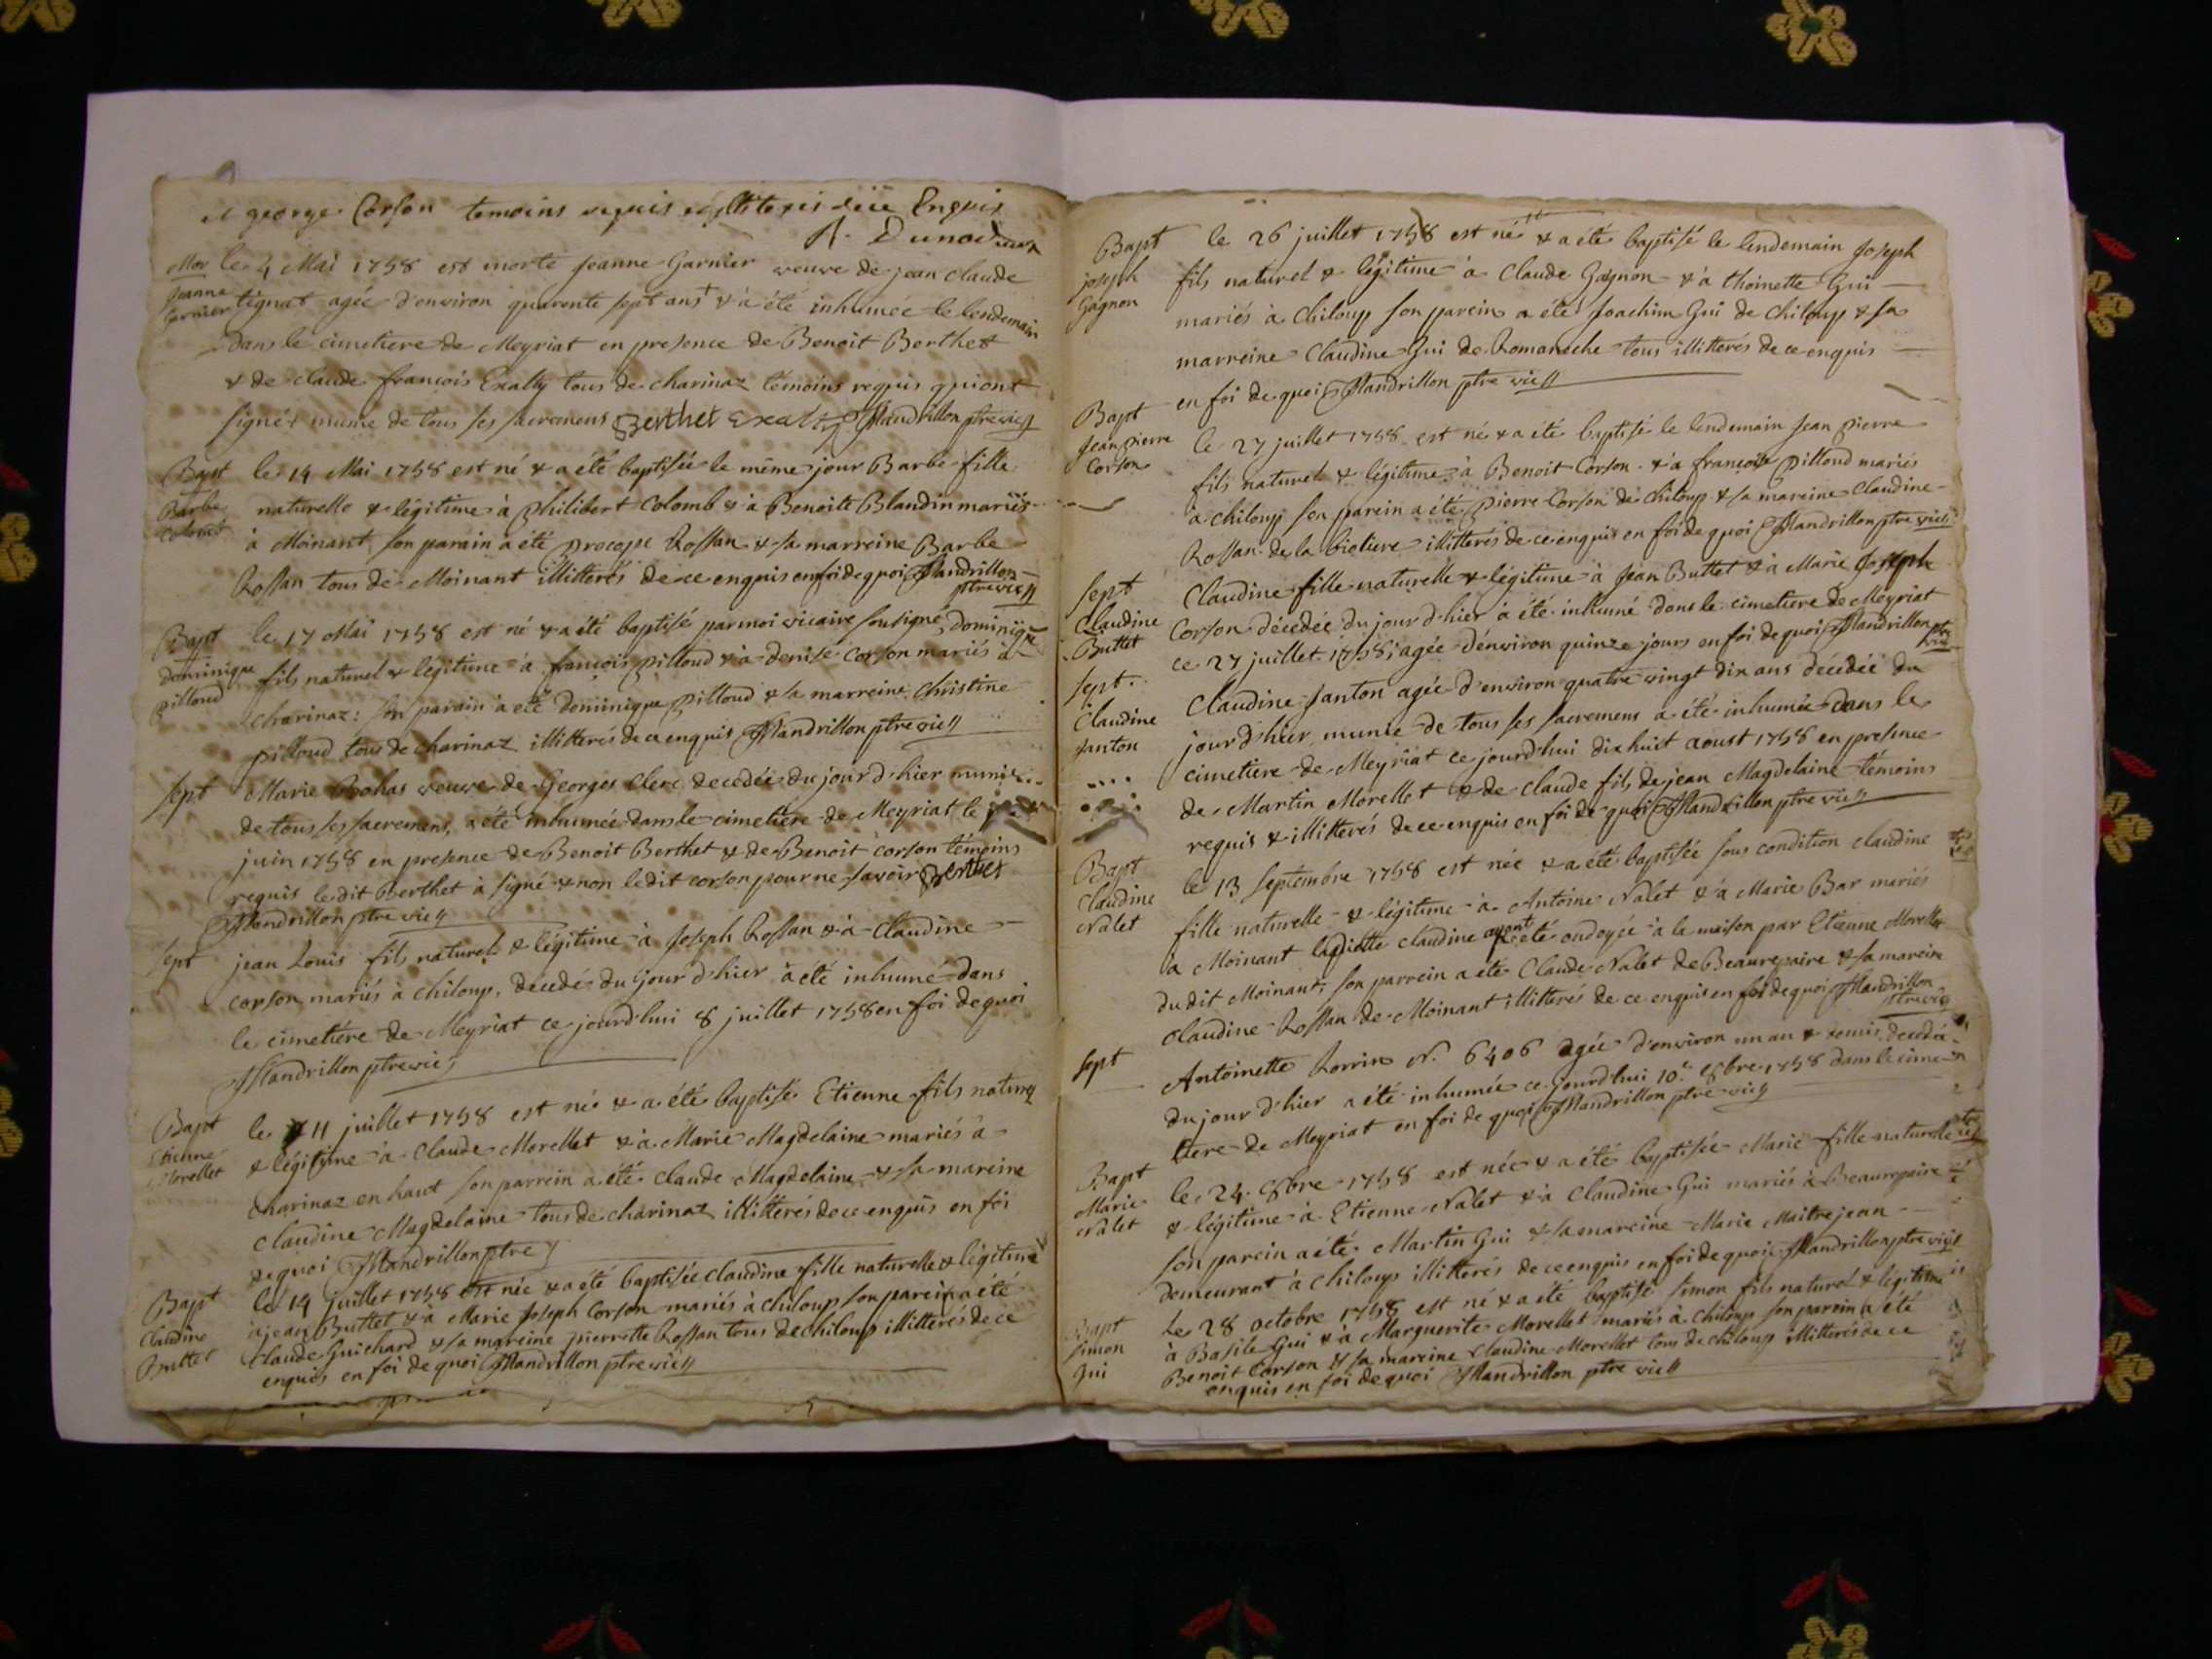 et george Corson temoins requis & illiteres de ce Enquis
Mor le 4 Mai 1758 est morte Jeanne Garnier veuve de jean claude
Jeanne
Garnier tignat agée d'environ quarente sept ans + & a été inhumée le lendemain
dans le cimetiere de Meyriat en presence de Benoit Berthet
& de claude francois Exally tous de charinaz témoins requis qui ont
signé + munie de tous ses sacremens Berthet Exally Mandrillon ptre vic
Bapt
Barbe
Colomb
le 14 Mai 1758 est né & a été baptisée le même jour Barbe fille
naturelle & légitime à Philibert Colomb & à Benoite Blandin mariés
à Moinant, son parain a été procope Rossan & sa marreine Barbe
Rossan tous de Moinant illitterés de ce enquis en foi de quoi Mandrillon
ptre vic
Bapt
Dominique
pilloud
le 17 Mai 1758 est né & a été baptisé par moi vicaire sousigné, Dominique
fils naturel & légitime à francois pilloud & à denise Corson mariés à
charinaz: son parain à eté Dominique pilloud & sa marreine christine
pilloud tous de charinaz illitterés de ce enquis Mandrillon ptre vic
Sept
Marie Bohas veuve de Georges Clerc decedée du jour d'hier munie
de tous ses sacremens, a été inhumée dans le cimetiere de Meyriat le
juin 1758 en presence de Benoit Berthet & de Benoit corson témoins
requis ledit Berthet à signé & non ledit corson pour ne savoir Berthet
Mandrillon ptre vic
Sept
jean Louis fils naturel & légitime à Joseph Rossan & à Claudine
corson mariés à chiloup, decedé du jour d'hier a été inhumé dans
le cimetiere de Meyriat ce jourd'hui 8 juillet 1758 en foi de quoi
Mandrillon ptre vic
Bapt
Etienne
Morellet
le 11 juillet 1758 est né & a été baptisé Etienne fils naturel
& légitime à Claude Morellet & à Marie Magdelaine mariés à
charinaz en haut son parrein a été claude Magdelaine & sa mareine
claudine Magdelaine tous de charinaz illitterés de ce enquis en foi
de quoi Mandrillon ptre
Bapt
Claudine
Buttet
le 14 juillet 1758 est née & a été baptisée claudine fille naturelle & légitime
à jean Buttet & à Marie Joseph Corson mariés à chiloup son parein a été
Claude Guichard & sa mareine pierrette Rossan tous de chiloup illitterés de ce
enquis en foi de quoi Mandrillon ptre vic
Bapt
joseph
Gagnon
le 26 juillet 1758 est né & a été baptisé le lendemain Joseph
fils naturel & légitime à Claude Gagnon & à thoinette Gui
mariés à chiloup son parein a été Joachim Gui de chiloup & sa
marreine Claudine Gui de Romaneche tous illitterés de ce enquis
en foi de quoi Mandrillon ptre vic
Bapt
Jean pierre
Corson
le 27 juillet 1758 est né & a été baptisé le lendemain Jean pierre
fils naturel & légitime à Benoit Corson & à francoise pilloud mariés
à chiloup son parein a été pierre Corson de chiloup & sa mareine claudine
Rossan de la bietiere illitterés de ce enquis en foi de quoi Mandrillon ptre vic
Sept
Claudine
Buttet
Claudine fille naturelle & légitime à Jean Buttet & à Marie Joseph
Corson décédée du jour d'hier à été inhumé dans le cimetiere de Meyriat
ce 27 juillet 1758, agée d'environ quinze jours en foi de quoi Mandrillon ptre
vic
Sept.
Claudine
Janton
Claudine Janton agée d'environ quatre vingt dix ans décédée du
jour d'hier munie de tous ses sacremens a été inhumée dans le
cimetiere de Meyriat ce jourd'hui dix huit aoust 1758 en presence
de Martin Morellet & de claude fils de jean Magdelaine témoins
requis & illitterés de ce enquis en foi de quoi Mandrillon ptre vic
Bapt
Claudine
Nalet
le 13 septembre 1758 est née & a été baptisée sous condition claudine
fille naturelle & légitime à Antoine Nalet & à Marie Bar mariés
à Moinant laditte claudine ayant été ondoyée à la maison par Etienne Morellet
du dit Moinant, son parrein a été Claude Nalet de Beaurepaire & sa mareine
claudine Rossan de Moinant illitterés de ce enquis en foi de quoi Mandrillon
ptre vic
Sept
Antoinette Perrin N. 6406 agée d'environ un an & demis, decedée
du jour d'hier a été inhumée ce jourd'hui 10e 8bre 1758 dans le cime-
tiere de Meyriat en foi de quoi Mandrillon ptre vic
Bapt
Marie
Nalet
le 24 8bre 1758 est née & a été baptisée Marie fille naturelle
& légitime à Etienne Nalet & à Claudine Gui mariés à Beaurepaire
son parein a été Martin Gui & sa mareine Marie Maitrejean
demeurant à chiloup illitterés de ce enquis en foi de quoi Mandrillon ptre vic
Bapt
Simon
Gui
Le 28 octobre 1758 est né & a été baptisé simon fils naturel & légitime
à Basile Gui & à Marguerite Morellet mariés à chiloup son parein a été
Benoit Corson & sa mareine claudine Morellet tous de chiloup illitterés de ce
enquis en foi de quoi Mandrillon ptre vic